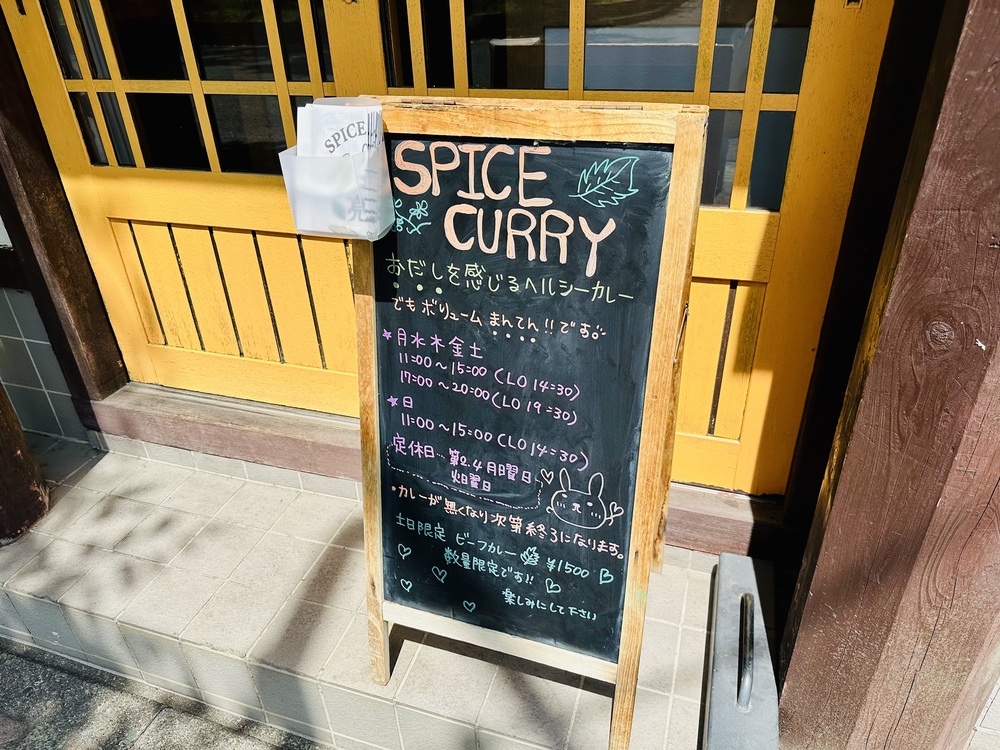 SPICE
SPICE
CURRY
おだしを感じるヘルシーカレー
でも ボリューム まんてん!! です
★月水木金土
11:00〜15:00 (LO 14:30)
17:00〜20:00 (LO 19:30)
★日
11:00〜15:00 (LO 14:30)
定休日… 第2.4月曜日
火曜日
・カレーが無くなり次第終了になります。
土日限定 ビーフカレー ¥1500
数量限定です!!
楽しみにして下さい